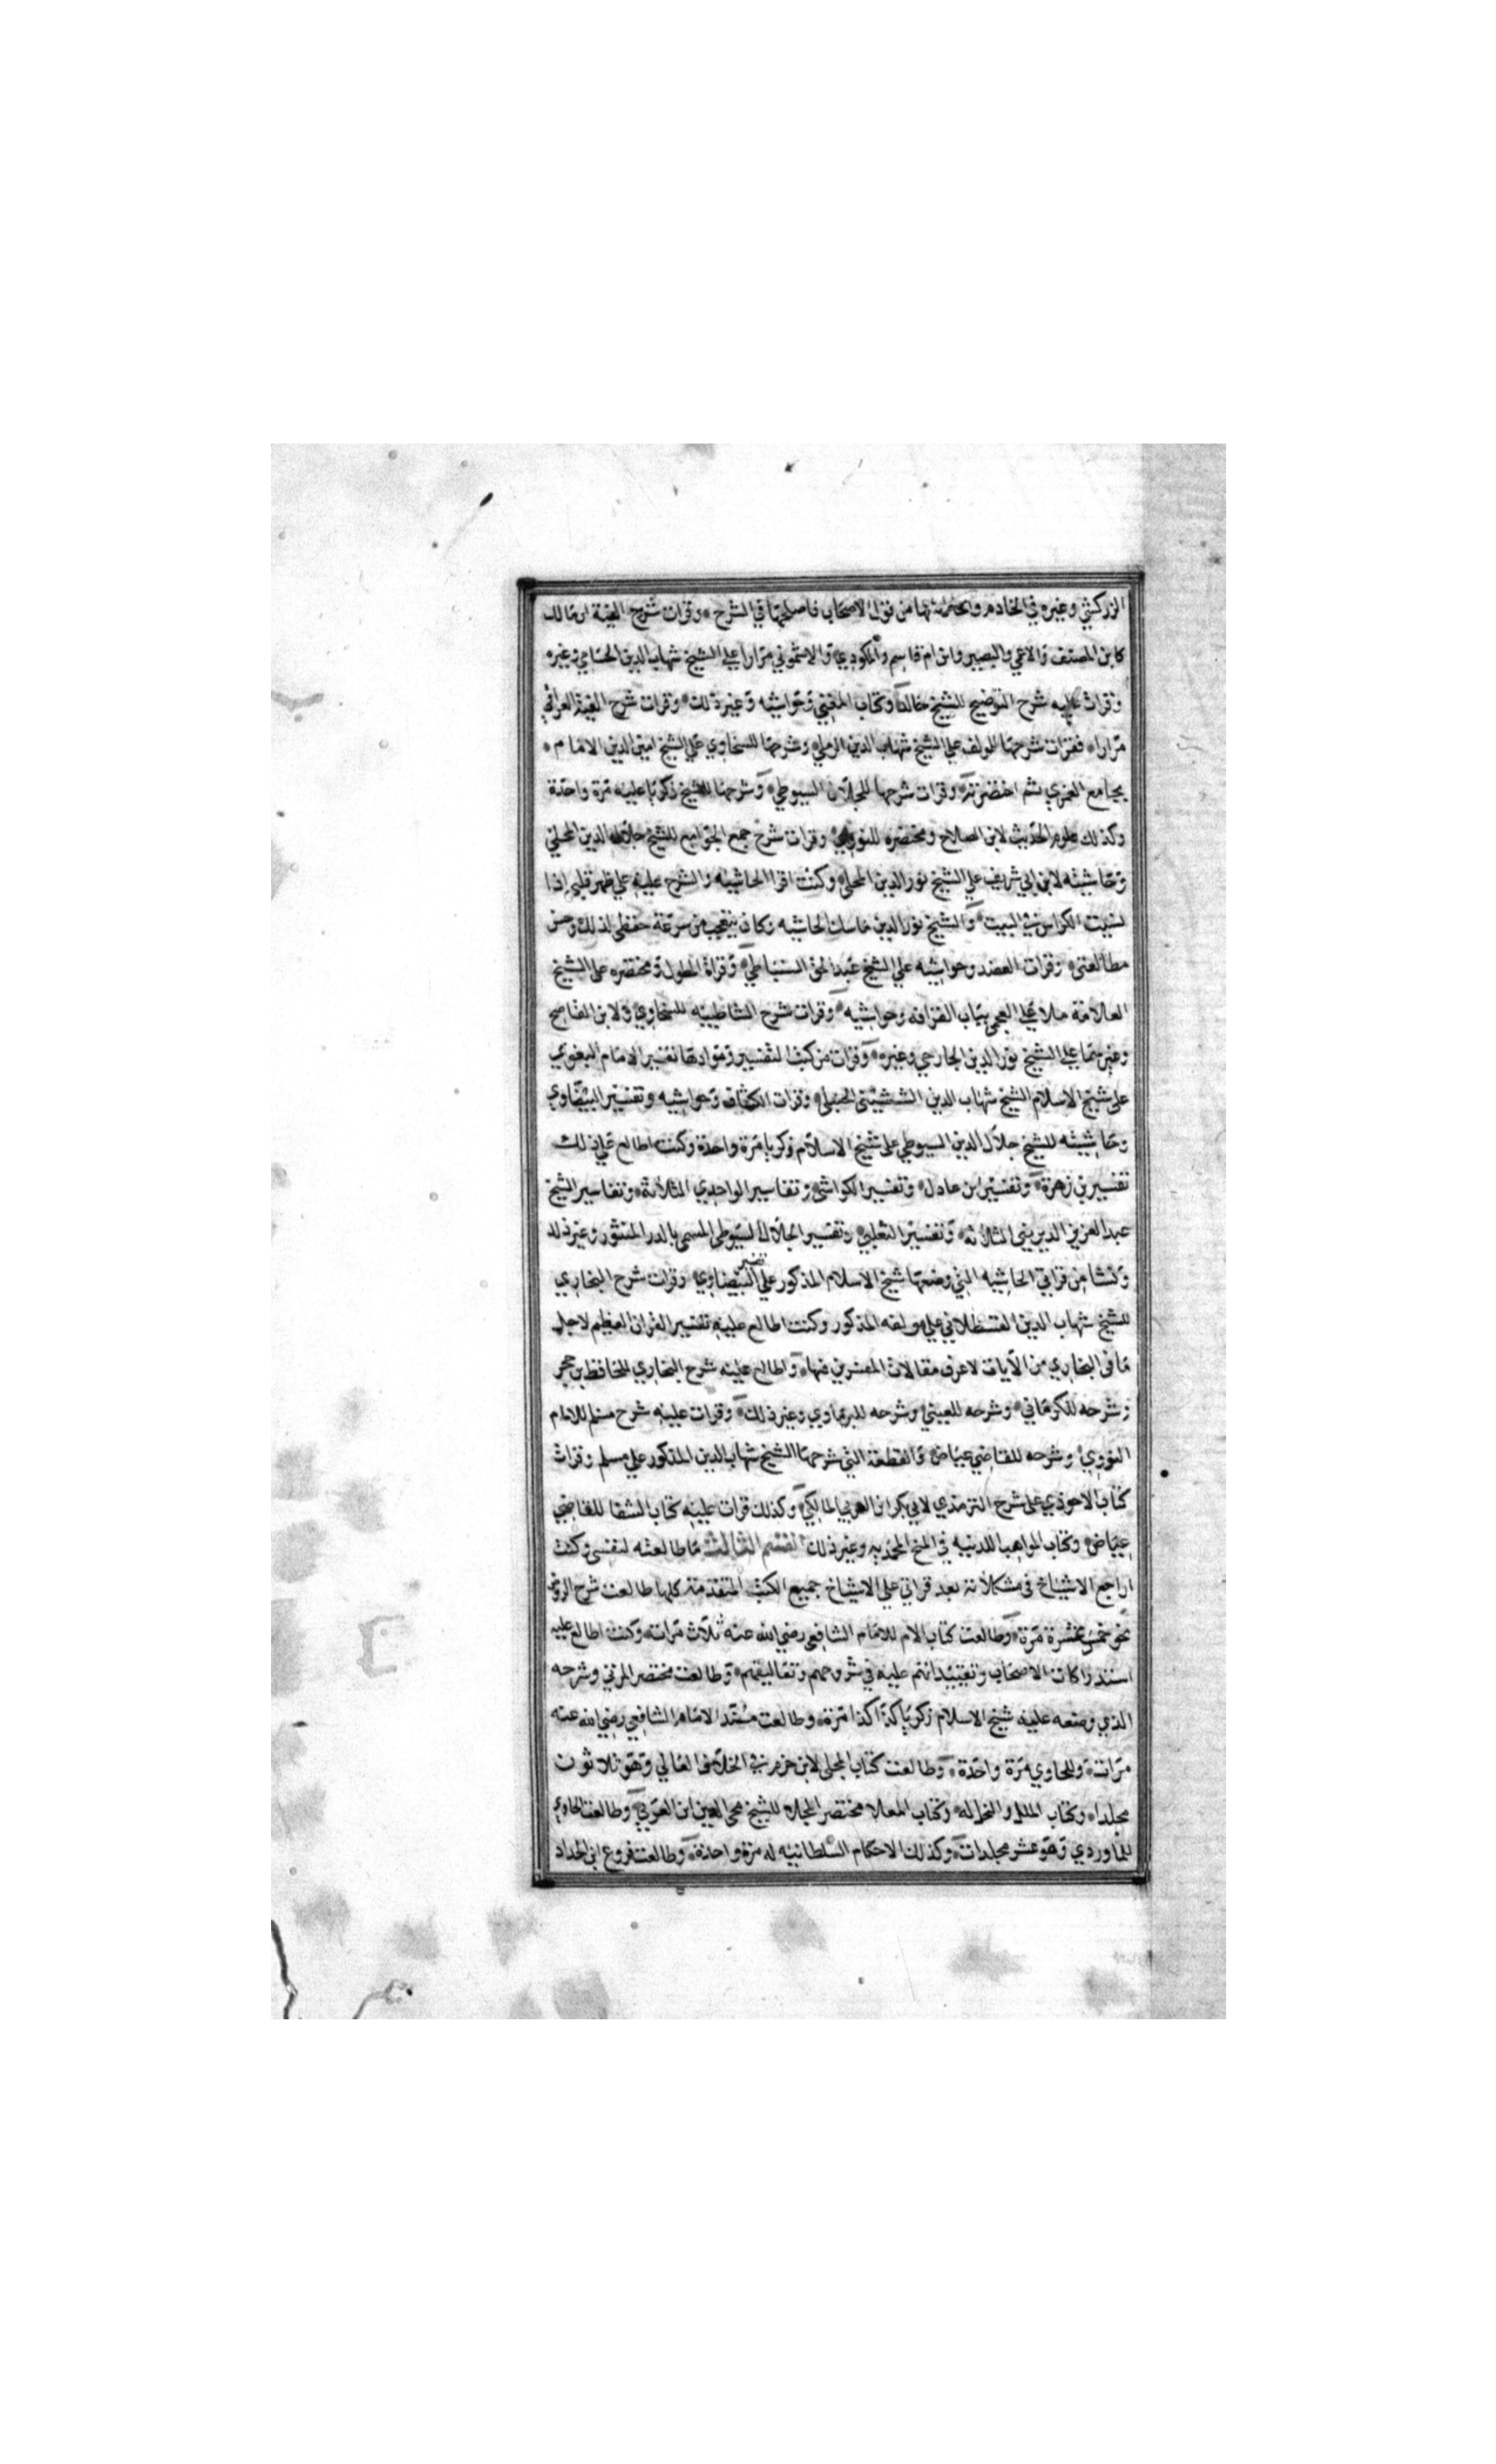 الزركشي وغيره في الخادم وانها من قول الاصحاب فاصلحتها في الشرح وقرات شروح الفية ابن مالك
كابن المصنف والاعمي والبصير وابن ام قاسم والمكودي والاشموني مرارا علي الشيخ شهاب الدين الحسامي وغيره
وقرات عليه شرح التوضيح للشيخ خالد وكتاب المغني وحواشيه وغير ذلك وقرات شرح الفية العراقي
مرارا فقرات شرحها للمولف علي الشيخ شهاب الدين الرملي وشرحها للسخاوي علي الشيخ امين الدين الامام
بجامع الغمري ثم اختصرته وقرات شرحها للجلال السيوطي وشرحها للشيخ زكريا عليه مرة واحدة
وكذلك علوم الحديث لابن الصلاح ومختصره للنووي وقرات شرح جمع الجوامع للشيخ جلال الدين المحلي
وحاشيته لابن ابي شريف علي الشيخ نور الدين المحلي وكنت اقرا الحاشيه والشرح عليه علي ظهر قلبي اذا
نسيت الكراس في البيت والشيخ نور الدين ماسك الحاشيه وكان يتعجب من سرعة حفظي لذلك وحسن
مطالعتي وقرات العضد وحواشيه علي الشيخ عبد الحق السنباطي وقراة المطول ومختصره على الشيخ
العلامة ملا علي العجمي بباب القرافه وحواشيه وقرات شرح الشاطبيه للسخاوي ولابن القاصح
وغيرهما علي الشيخ نور الدين الجارحي وغيره وقرات من كتب التفسير وموادها تفسير الامام البغوي
على شيخ الاسلام الشيخ شهاب الدين الششيني الحنبلي وقرات الكشاف وحواشيه وتفسير البيضاوي
وحاشيته للشيخ جلال الدين السيوطي على شيخ الاسلام زكريا مرة واحدة وكنت اطالع علي ذلك
تفسير بن زهرة وتفسير ابن عادل وتفسير الكواشي وتفاسير الواحدي الثلاثة وتفاسير الشيخ
عبد العزيز الديريني الثلاثه وتفسير الثعلبي وتفسير الجلال السيوطي المسمى بالدر المنثور وغير ذلك
ونشا من قراتي الحاشيه التي وضعها شيخ الاسلام المذكور علي تفسير البيضاوي وقرات شرح البخاري
للشيخ شهاب الدين القسطلاني علي مولفه المذكور وكنت اطالع عليه تفسير القران العظيم لاجل
ما في البخاري من الايات لاعرف مقالات المفسرين فيها واطالع عليه شرح البخاري للحافظ بن حجر
وشرحه للكرماني وشرحه للعيني وشرحه للبرماوي وغير ذلك وقرات عليه شرح مسلم للامام
النووي وشرحه للقاضي عياض والقطعة التي شرحها الشيخ شهاب الدين المذكور علي مسلم وقرات
كتاب الاحوذي على شرح الترمذي لابي بكر ابن العربي المالكي وكذلك قرات عليه كتاب الشفا للقاضي
عياض وكتاب المواهب اللدنيه في المنح المحمديه وغير ذلك القسم الثالث ما طالعته لنفسي وكنت
اراجع الاشياخ في مشكلاته بعد قراتي علي الاشياخ جميع الكتب المتقدمة كلها طالعت شرح الروض
نحو خمس عشرة مرة وطالعت كتاب الام للامام الشافعي رضي الله عنه ثلاث مرات وكنت اطالع عليه
استدراكات الاصحاب وتقييداتهم عليه في شروحهم وتعاليقهم وطالعت مختصر المزني وشرحه
الذي وضعه عليه شيخ الاسلام زكريا كذا كذا مرة وطالعت مسند الامام الشافعي رضي الله عنه
مرات وللحاوي مرة واحدة وطالعت كتاب المحلى لابن حزم في الخلاف العالي وهو ثلاثون
مجلدا وكتاب الملل والنحل له وكتاب المعلا مختصر المحلا للشيخ محي الدين ابن العربي وطالعت الحاوي
للماوردي وهو عشر مجلدات وكذلك الاحكام السلطانيه له مرة واحدة وطالعت فروع ابن الحداد